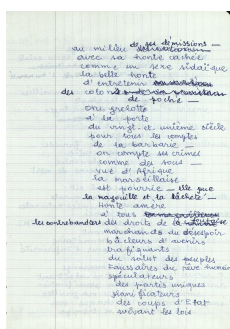 au milieu de ses démissions —
avec sa honte caché
comme un sexe sidaïque
la belle honte
d'entretenir
des colons
de poche —
on grelotte
à la porte
du vingt et unième siècle
pour tous les comptes
de la barbarie —
on compte ses crimes
comme des sous —
vue d'Afrique
la marseillaise
est pourrie — elle pue
la magouille et la lâcheté —
Honte amère
à tous
les contrebandiers des droits de la
marchands du désespoir
bâcleurs d'avenirs
trafiquants
du salut des peuples
Faussaires du rêve humain
spéculateurs
des partis uniques
planificateurs
des coups d'Etat
suivant les lois